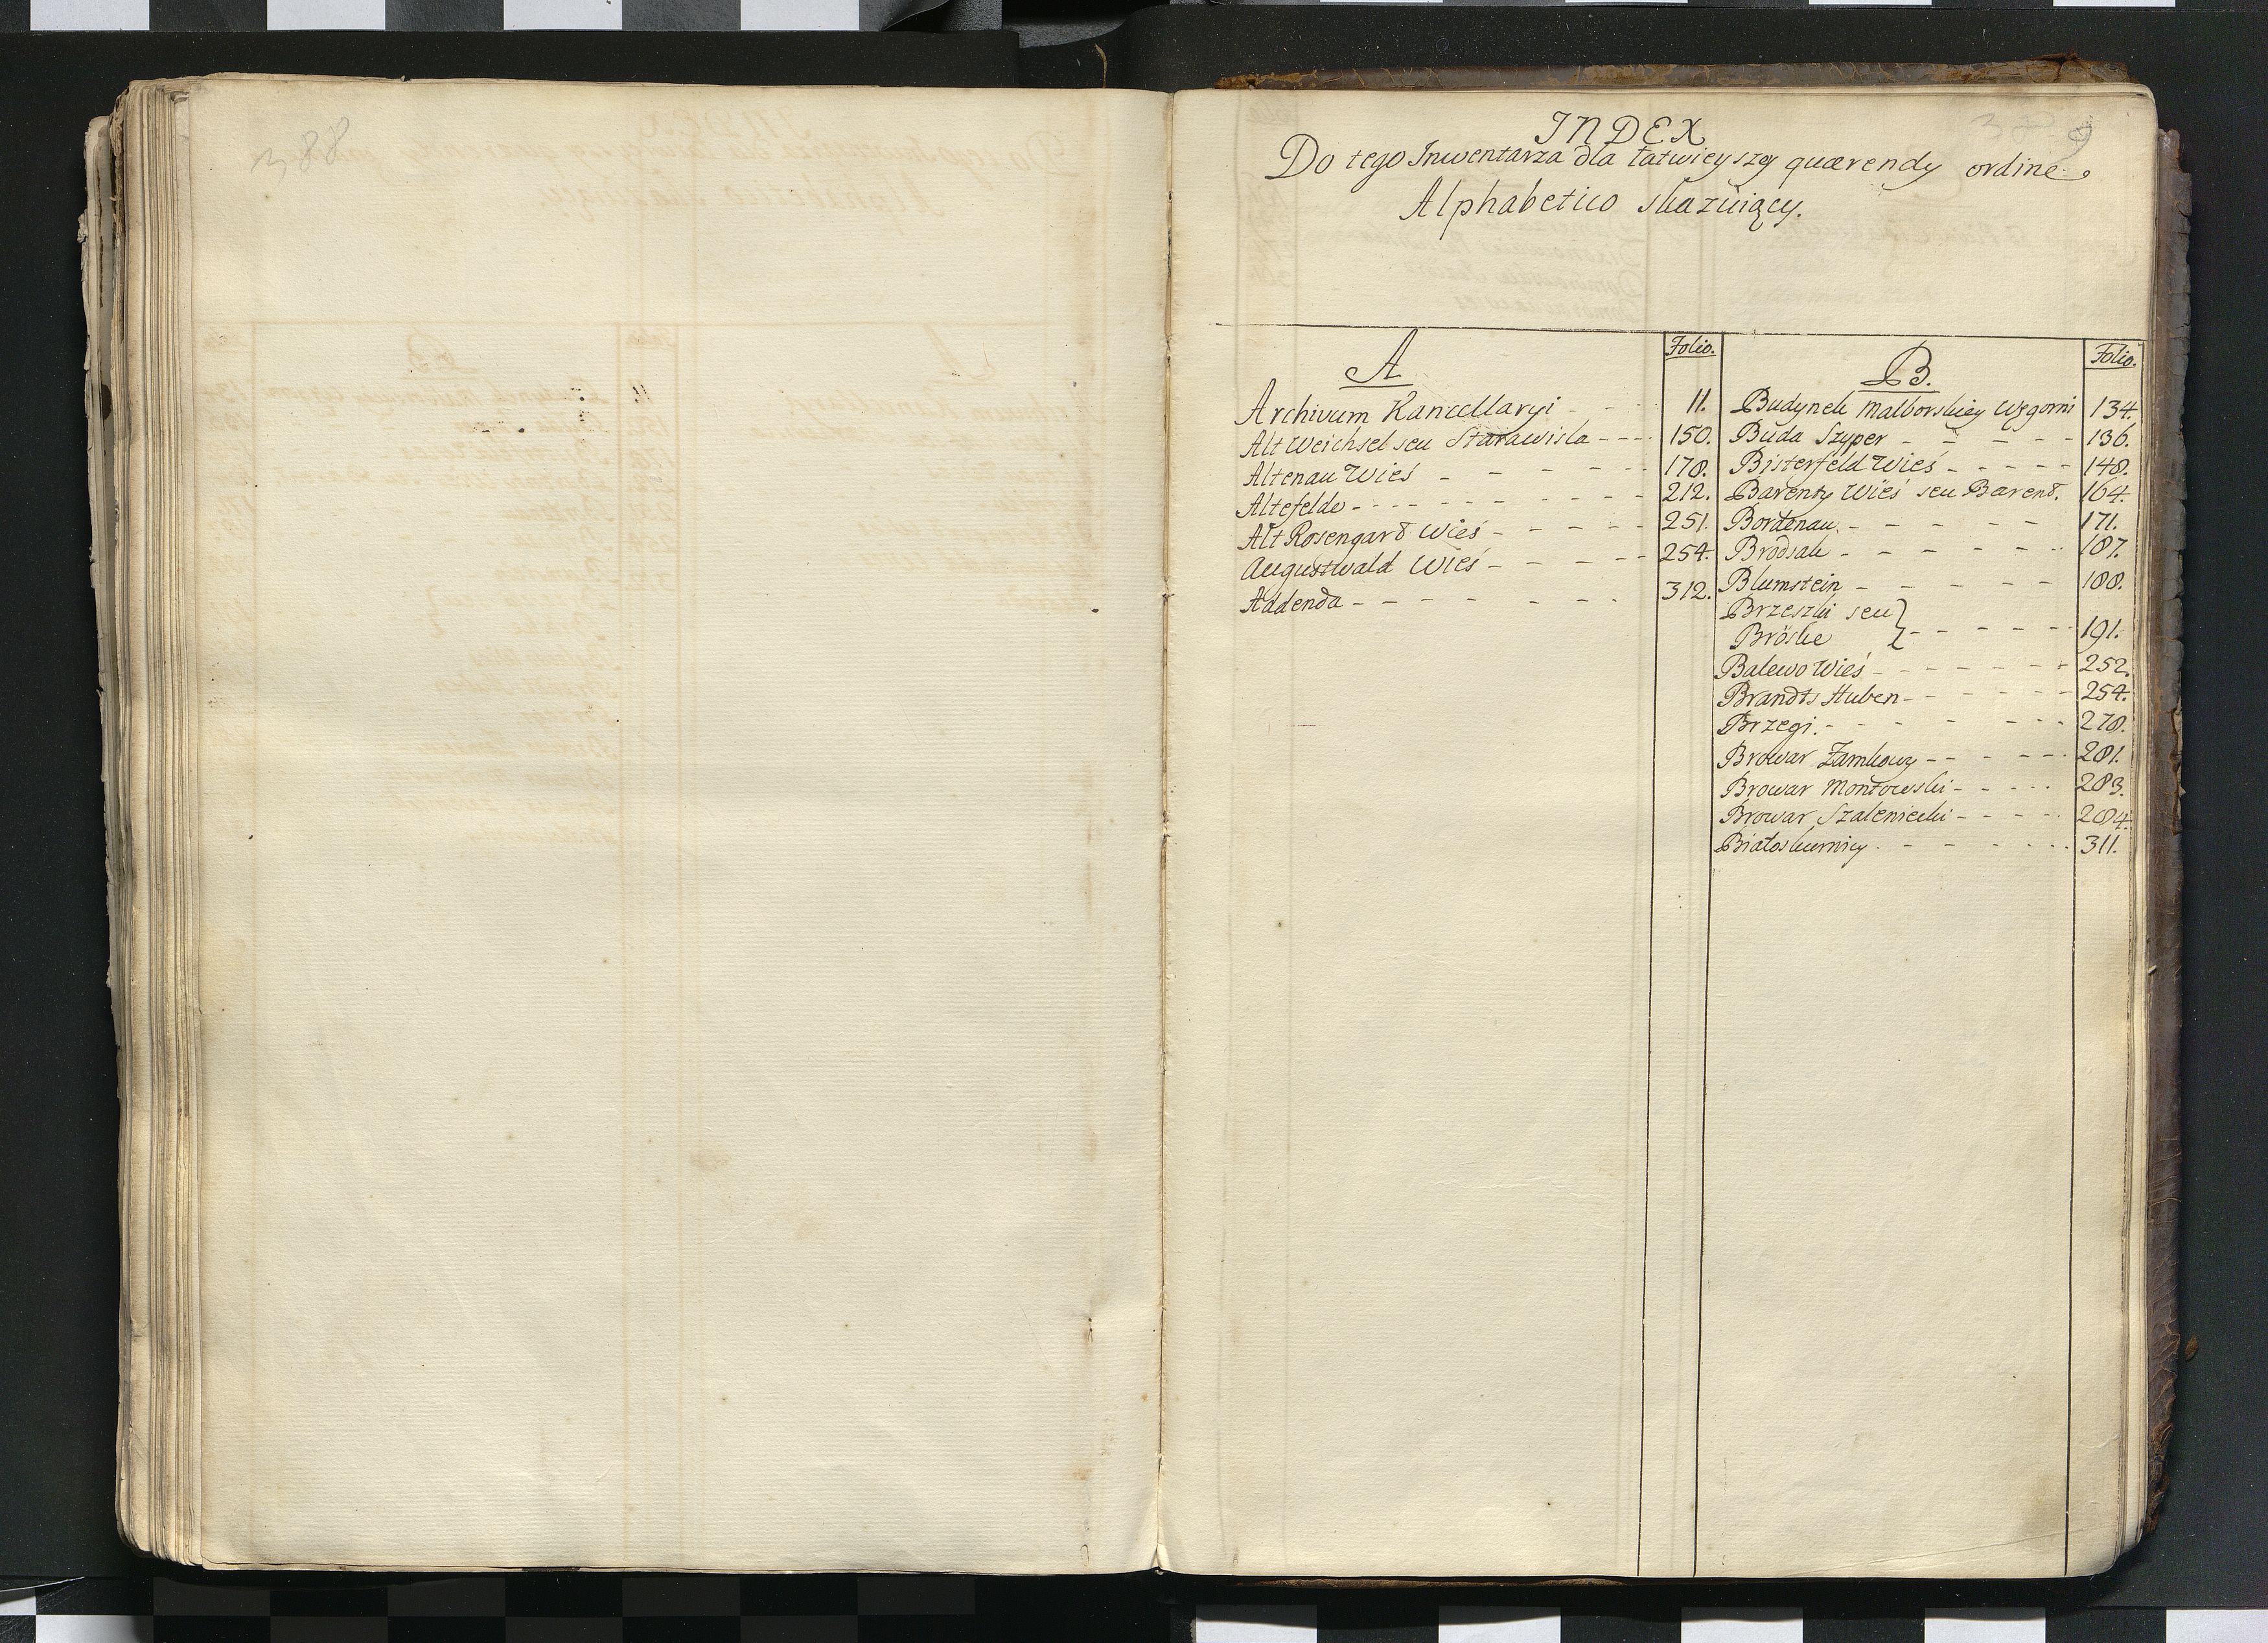 388
389
INDEX
Do tego Inwentarza dla łatwieyszey quærendy ordine
Alphabetico skazuiący.
A
Folio.
Archivum Kancellaryi - - - 11.
Alt Weichsel seu Starawisla - - - 150.
Altenau Wieś - - - - - 178.
Altefelde - - - - - - - 212.
Alt Rosengard Wieś - - - - 251.
Augustwald Wieś - - - - 254.
Addenda - - - - - - - 312.
B.
Folio.
Budynek Malborskiey Wzgorni 134.
Buda Szyper - - - - - 136.
Bisterfeld Wieś - - - - - 148.
Barenty Wieś seu Barend. 164.
Bordenau - - - - - 171.
Brodsak - - - - - - 187.
Blumstein - - - - - - 188.
Brzeszki seu }
Bröske } - - - - - - 191.
Balewo Wieś - - - - - - 252.
Brandts Huben - - - - - 254.
Brzegi. - - - - - - - 278.
Browar Zamkowy - - - - - 281.
Browar Montowski - - - - - 283.
Browar Szaleniecki - - - - - 284.
Białoskurnicy - - - - - - 311.